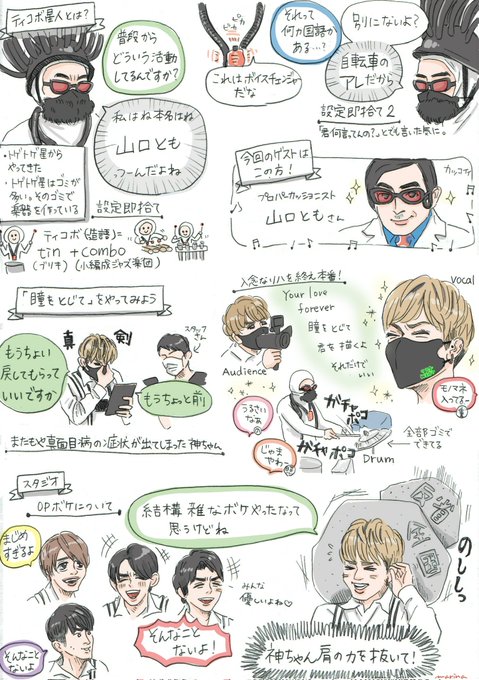 ティコボ星人とは?
普段から
どういう活動
してるんですか?
ピカ
ピカ
これはボイスチェンジャー
だな
それって
何カ国語が
ある…?
別にないよ?
自転車の
アレだから
設定即捨て2
「君何言ってんの?」とでも言いた気に。
私はね本名はね
山口とも
っつーんだよね
・トゲトゲ星から
やってきた
・トゲトゲ星はゴミが
多い。そのゴミで
楽器を作っている
設定即捨て
ティコボ(造語)=
tin + combo
(ブリキ)(小編成ジャズ楽団)
今回のゲストは
この方!
カッコイイ
プロパーカッショニスト
山口ともさん
「瞳をとじて」をやってみよう
真剣
もうちょい
戻してもらって
いいですか
スタッフ
さん
もうちょっと前
またもや真面目病の症状が出てしまった神ちゃん
入念なリハを終え本番!
Your love
forever
瞳をとじて
君を描くよ
それだけで
いい
Audience
vocal
モノマネ
入ってるー
うるさい
なあ
じゃま
やわー
ガチャ
ポコ
ガチャポコ
Drum
全部ゴミで
できてる
スタジオ
OPボケについて
まじめ
すぎるよ
結構雑なボケやったなって
思うけどね
みんな
優しいよね♡
そんなこと
ないよ!
そんなこと
ないよ
のしっ
神ちゃん肩の力を抜いて!
marina